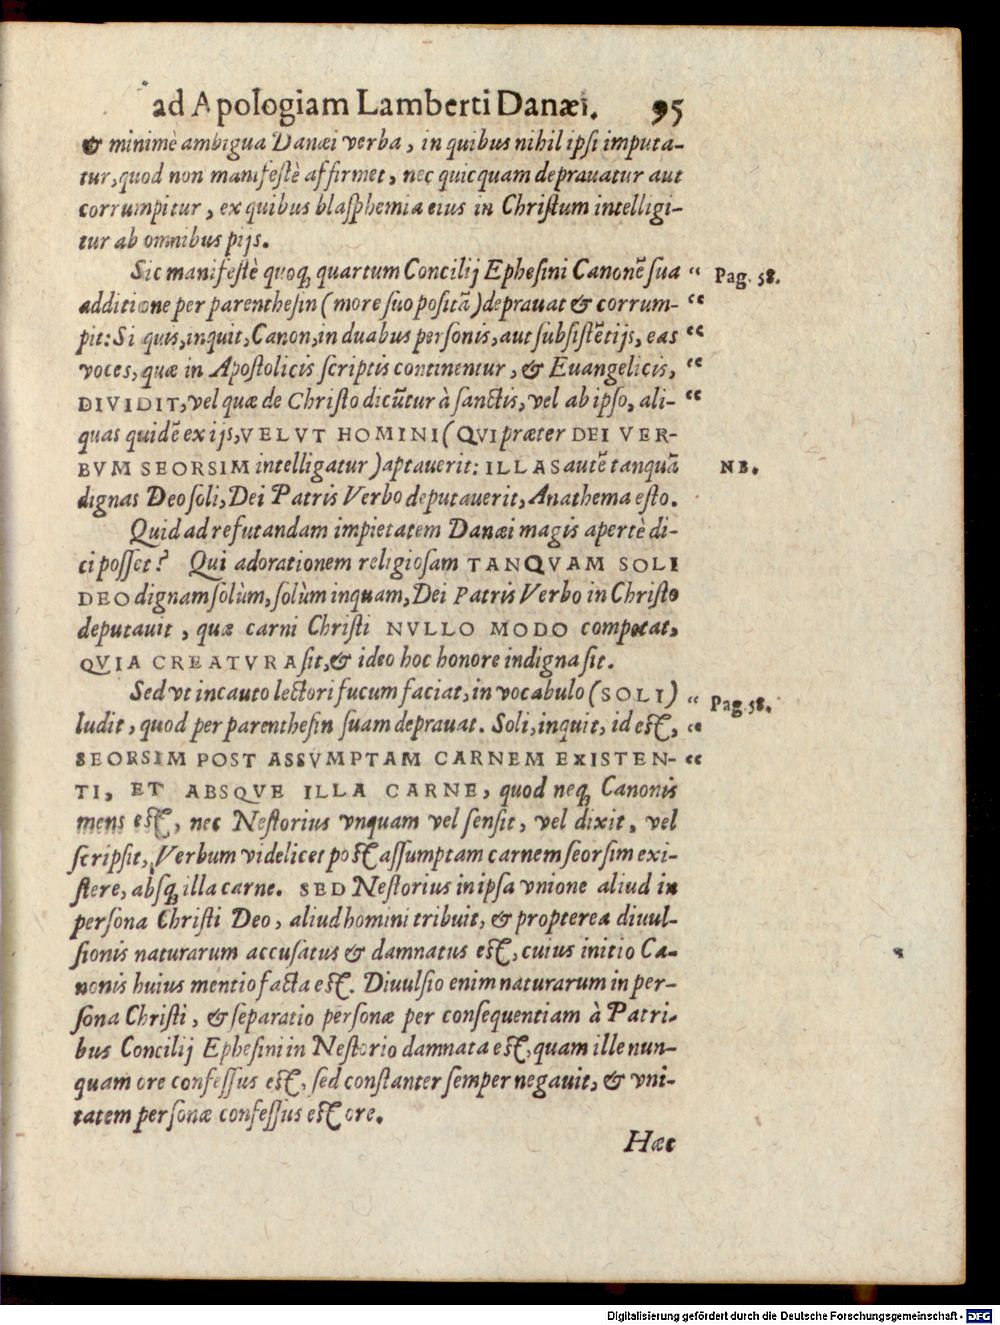 ad Apologiam Lamberti Danæi. 95
& minimè ambigua Danæi verba, in quibus nihil ipsi imputa-
tur, quod non manifestè affirmet, nec quicquam deprauatur aut
corrumpitur, ex quibus blasphemia eius in Christum intelligi-
tur ab omnibus pijs.
Sic manifestè quoq; quartum Concilij Ephesini Canonē sua “ Pag. 58.
additione per parenthesin (more suo positā) deprauat & corrum- “
pit: Si quis, inquit, Canon, in duabus personis, aut subsistētijs, eas “
voces, quæ in Apostolicis scriptis continentur, & Euangelicis, “
DIVIDIT, vel quæ de Christo dicūtur à sanctis, vel ab ipso, ali- “
quas quidē ex ijs, VELVT HOMINI (QVI præter DEI VER-
BVM SEORSIM intelligatur) aptauerit: ILLAS autē tanquā NB.
dignas Deo soli, Dei Patris Verbo deputauerit, Anathema esto.
Quid ad refutandam impietatem Danæi magis apertè di-
ci posset? Qui adorationem religiosam TANQVAM SOLI
DEO dignam solùm, solùm inquam, Dei Patris Verbo in Christo
deputauit, quæ carni Christi NVLLO MODO competat,
QVIA CREATVRA sit, & ideo hoc honore indigna sit.
Sed vt incauto lectori fucum faciat, in vocabulo (SOLI) “ Pag. 58.
ludit, quod per parenthesin suam deprauat. Soli, inquit, id est, “
SEORSIM POST ASSVMPTAM CARNEM EXISTEN- “
TI, ET ABSQVE ILLA CARNE, quod neq; Canonis
mens est, nec Nestorius vnquam vel sensit, vel dixit, vel
scripsit, Verbum videlicet post assumptam carnem seorsim exi-
stere, absq; illa carne. SED Nestorius in ipsa vnione aliud in
persona Christi Deo, aliud homini tribuit, & propterea diuul-
sionis naturarum accusatus & damnatus est, cuius initio Ca-
nonis huius mentio facta est. Diuulsio enim naturarum in per-
sona Christi, & separatio personæ per consequentiam à Patri-
bus Concilij Ephesini in Nestorio damnata est, quam ille nun-
quam ore confessus est, sed constanter semper negauit, & vni-
tatem personæ confessus est ore.
Hæc
Digitalisierung gefördert durch die Deutsche Forschungsgemeinschaft - DFG